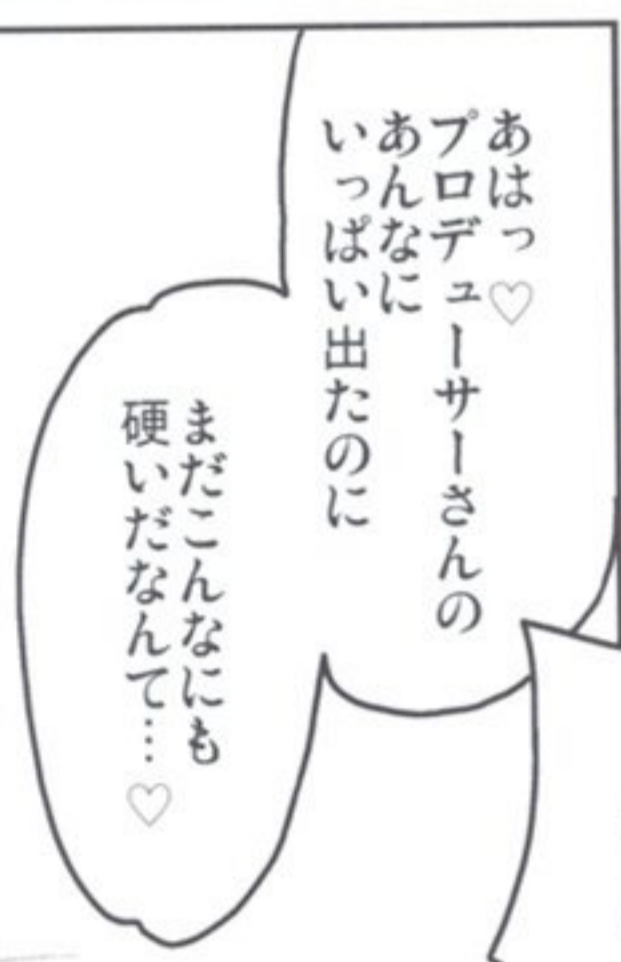 あはっ♡
プロデューサーさんの
あんなに
いっぱい出たのに
まだこんなにも
硬いだなんて…♡